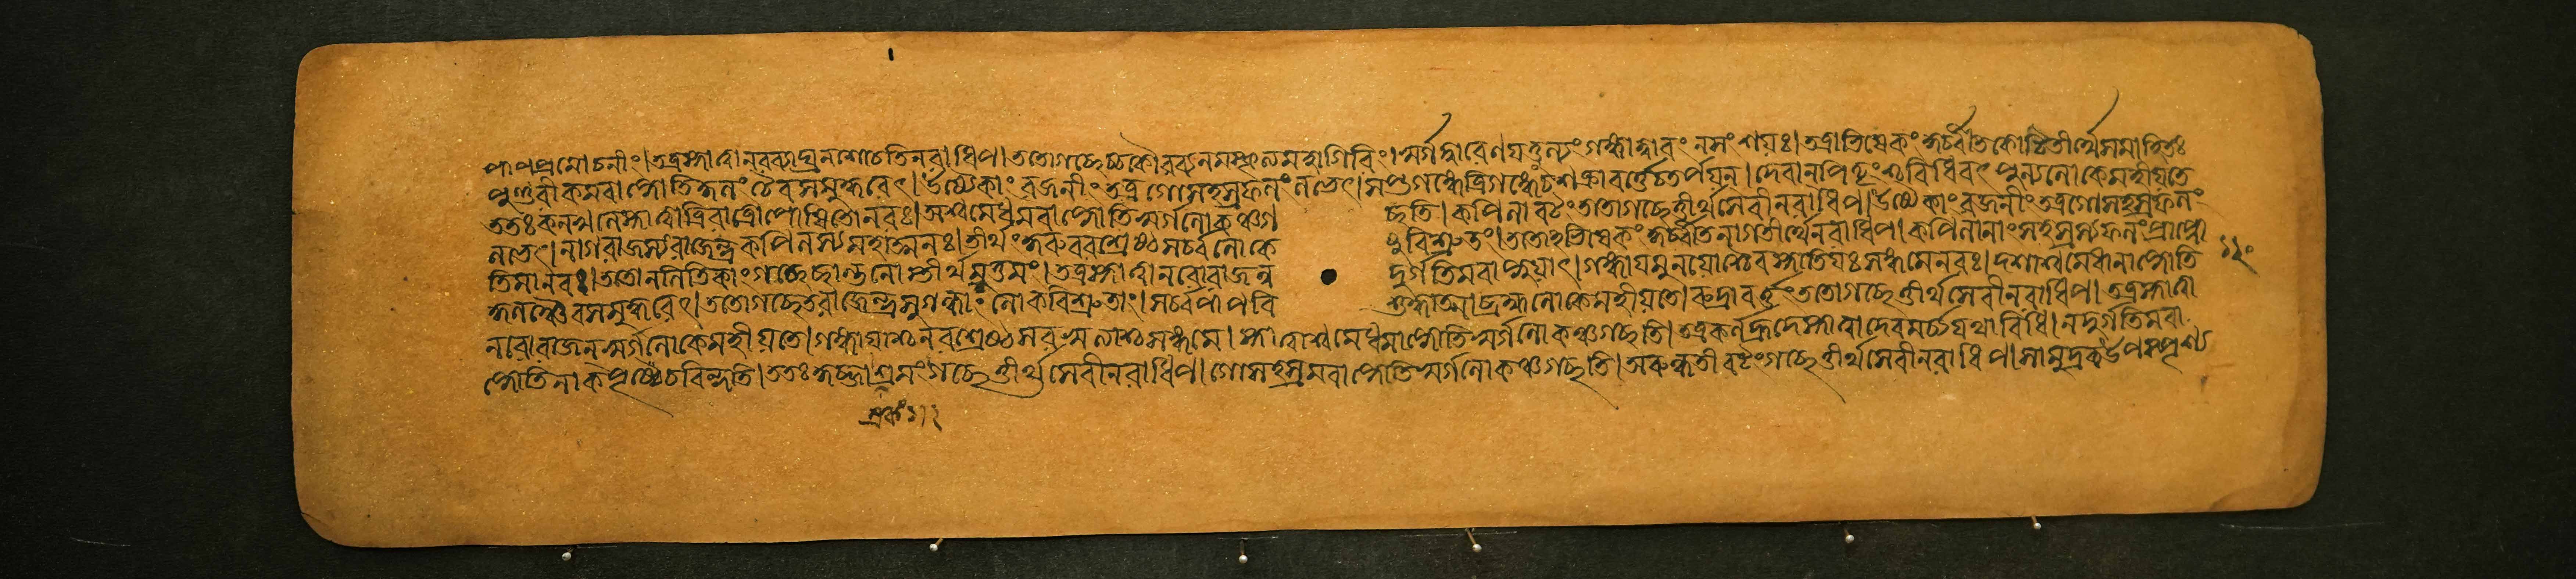 পাপপ্রমোচনীং।তত্রস্নাত্বানরব্যাঘ্রনশোচতিনরাধিপ।ততোগচ্ছেচ্চকৌরব্যনমস্কৃত্যমহাগিরিং।স্বর্গদ্বারেণযত্তুল্যংগঙ্গাদ্বারংনসংশয়ঃ।তত্রাভিষেকংকুর্ব্বীতকোটিতীর্থেসমাহিতঃ
পুণ্ডরীকমবাপ্নোতিকুলংচৈবসমুদ্ধরেৎ।উষ্যৈকাংরজনীংতত্রগোসহস্রফলংলভেৎ।সপ্তগঙ্গেত্রিগঙ্গেচশক্রাবর্ত্তেচতর্পয়ন্।দেবানপিতৄংশ্চবিধিবৎপুণ্যলোকেমহীয়তে
ততঃকনখলেস্নাত্বাত্রিরাত্রোপোষিতোনরঃ।অশ্বমেধমবাপ্নোতিস্বর্গলোকঞ্চগচ্ছতি।কপিলাবটংততোগচ্ছেত্তীর্থসেবীনরাধিপ।উষ্যৈকাংরজনীংতত্রগোসহস্রফলং
লভেৎ।নাগরাজস্যরাজেন্দ্রকপিলস্যমহাত্মনঃ।তীর্থংকুরুবরশ্রেষ্ঠসর্ব্বলোকেষুবিশ্রুতং।তত্রাভিষেকংকুর্ব্বীতনাগতীর্থেনরাধিপ।কপিলানাংসহস্রস্যফলংপ্রাপ্নো
তিমানবঃ।ততোললিতিকাংগচ্ছেচ্ছান্তনোস্তীর্থমুত্তমং।তত্রস্নাত্বানরোরাজন্নদুর্গতিমবাপ্নুয়াৎ।গঙ্গাযমুনয়োশ্চৈবস্নাতিযঃসঙ্গমেনরঃ।দশাশ্বমেধানাপ্নোতি
কুলঞ্চৈবসমুদ্ধরেৎ।ততোগচ্ছেতরাজেন্দ্রসুগন্ধাংলোকবিশ্রুতাং।সর্ব্বপাপবিশুদ্ধাত্মাব্রহ্মলোকেমহীয়তে।রুদ্রাবর্ত্তংততোগচ্ছেত্তীর্থসেবীনরাধিপ।তত্রস্নাত্বা
নরোরাজনস্বর্গলোকেমহীয়তে।গঙ্গায়াশ্চনরশ্রেষ্ঠসরস্বত্যাশ্চসঙ্গমে।স্নাত্বাশ্বমেধমাপ্নোতিস্বর্গলোকঞ্চগচ্ছতি।তত্রকর্ণহ্রদেস্নাত্বাদেবমর্চ্চ্যযথাবিধি।নদুর্গতিমবা
প্নোতিনাকপৃষ্ঠেচবিন্দতি।ততঃকুব্জাশ্রমংগচ্ছেত্তীর্থসেবীনরাধিপ।গোসহস্রমবাপ্নোতিস্বর্গলোকঞ্চগচ্ছতি।অরুন্ধতীবটংগচ্ছেত্তীর্থসেবীনরাধিপ।সামুদ্রকমুপস্পৃশ্য